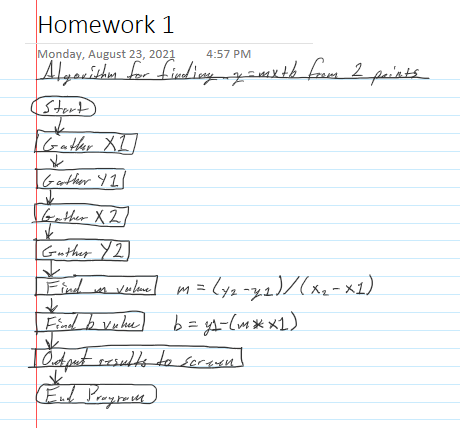 Homework 1
Monday, August 23, 2021 4:57 PM
Algorithm for finding y=mx+b from 2 points
Start
Gather X1
Gather Y1
Gather X2
Gather Y2
Find m value m = (y2-y1)/(x2-x1)
Find b value b = y1-(m*x1)
Output results to screen
End Program